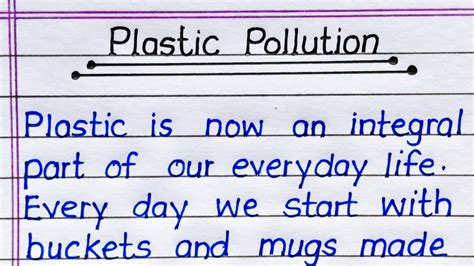 Plastic Pollution
Plastic is now an integral
part of our everyday life.
Every day we start with
buckets and mugs made